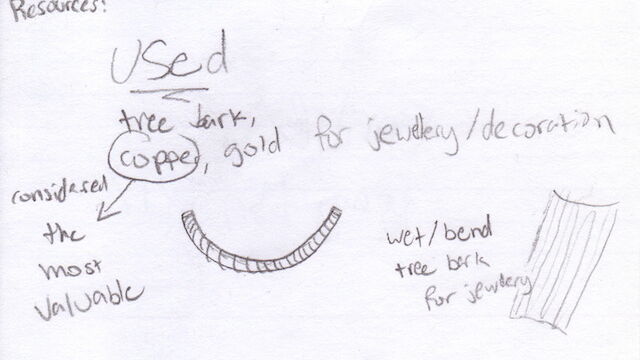 Resources:
Used
tree bark,
copper, gold for jewelery/decoration
considered
the
most
valuable
wet/bend
tree bark
for jewelery